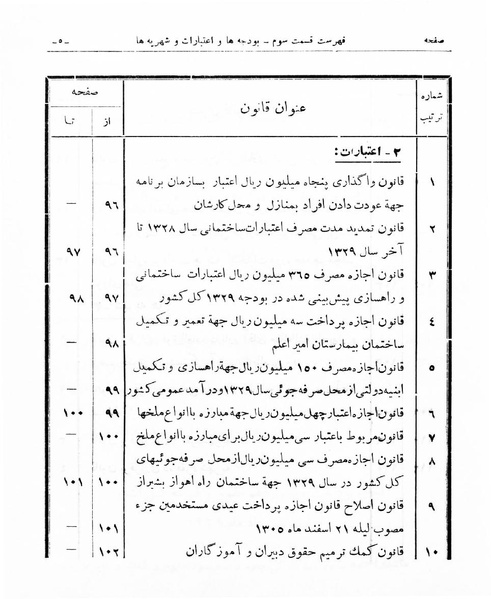 صفحه فهرست قسمت سوم - بودجه ها و اعتبارات و شهریه ها -۵-
شماره ترتیب عنوان قانون صفحه
از تا
۲- اعتبارات:
۱ قانون واگذاری پنجاه میلیون ریال اعتبار بسازمان برنامه
جهة عودت دادن افراد بمنازل و محل کارشان ۹۶ —
۲ قانون تمدید مدت مصرف اعتبارات ساختمانی سال ۱۳۲۸ تا
آخر سال ۱۳۲۹ ۹۶ ۹۷
۳ قانون اجازه مصرف ۳۶۵ میلیون ریال اعتبارات ساختمانی
و راهسازی پیش‌بینی شده در بودجه ۱۳۲۹ کل کشور ۹۷ ۹۸
۴ قانون اجازه پرداخت سه میلیون ریال جهة تعمیر و تکمیل
ساختمان بیمارستان امیر اعلم ۹۸ —
۵ قانون اجازه مصرف ۱۵۰ میلیون ریال جهة راهسازی و تکمیل
ابنیه دولتی از محل صرفه جوئی سال ۱۳۲۹ و درآمد عمومی کشور ۹۹ —
۶ قانون اجازه اعتبار چهل میلیون ریال جهة مبارزه با انواع ملخها ۹۹ ۱۰۰
۷ قانون مربوط باعتبار سی میلیون ریال برای مبارزه با انواع ملخ ۱۰۰ —
۸ قانون اجازه مصرف سی میلیون ریال از محل صرفه جوئیهای
کل کشور در سال ۱۳۲۹ جهة ساختمان راه اهواز بشیراز ۱۰۰ ۱۰۱
۹ قانون اصلاح قانون اجازه پرداخت عیدی مستخدمین جزء
مصوب لیله ۲۱ اسفند ماه ۱۳۰۵ ۱۰۱ —
۱۰ قانون کمک ترمیم حقوق دبیران و آموزگاران ۱۰۲ —